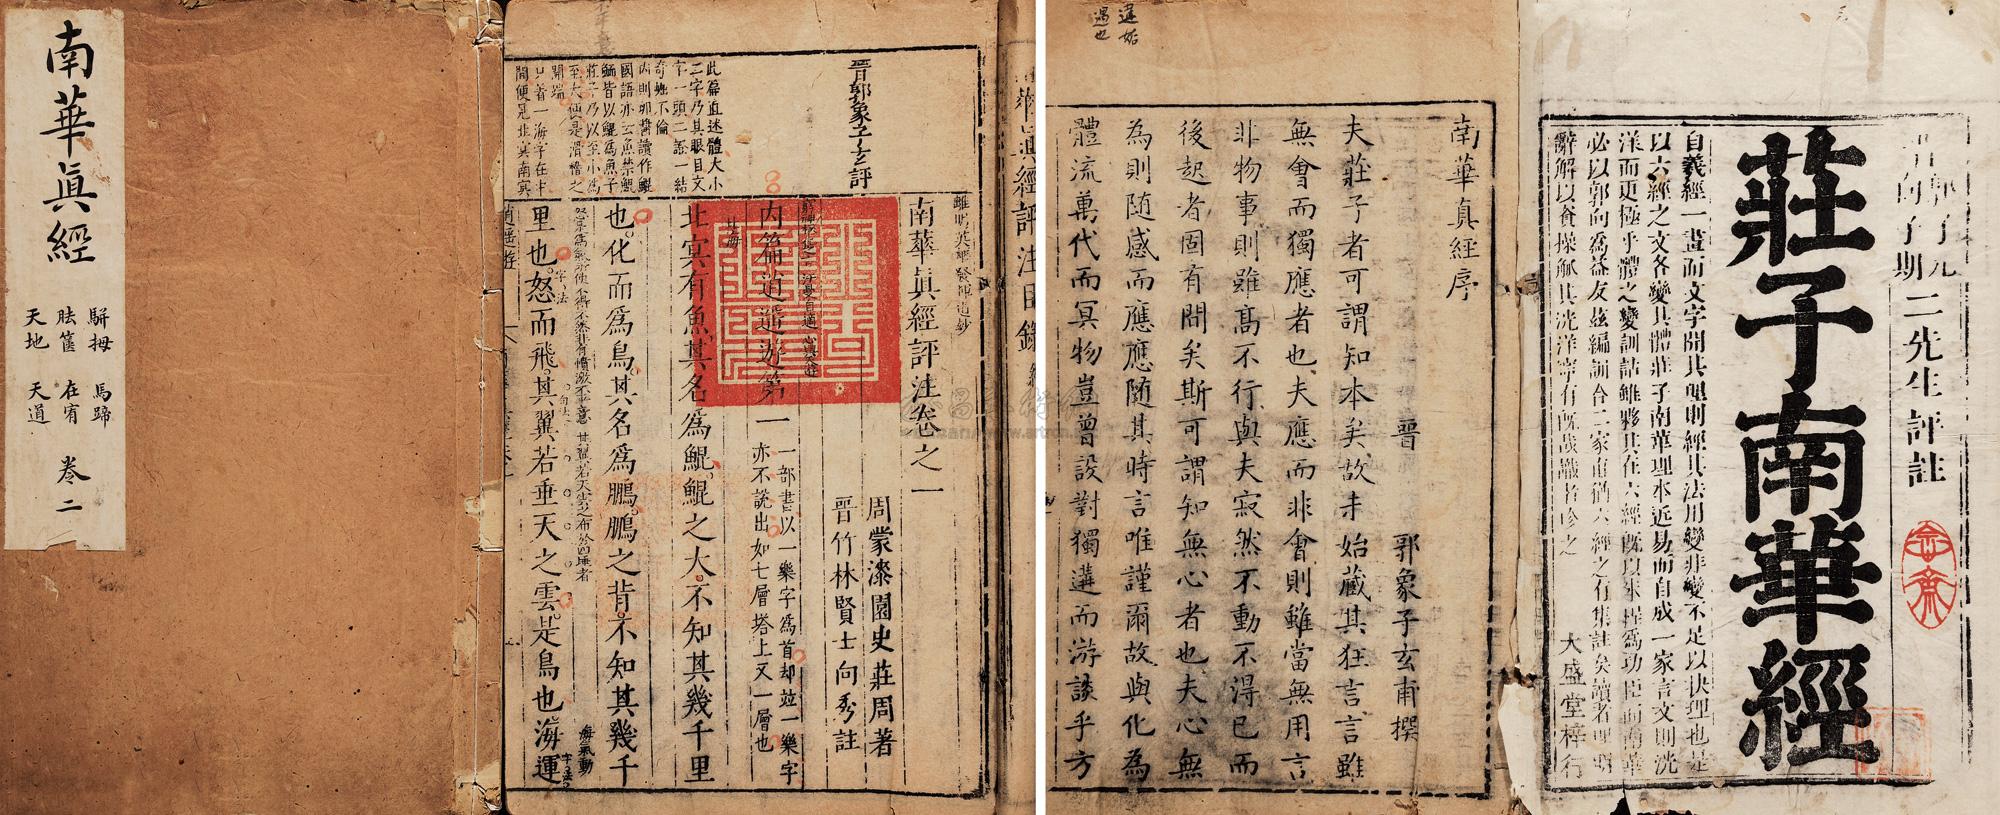 南華眞經
駢拇 馬蹄
胠篋 在宥
天地 天道
卷二
晉郭象子玄評
此篇直述體大小
二字乃其眼目文
字一頭二語一結
奇絶不倫
內則卵醬讀作鯤
國語亦云魚禁鯤
鱬皆以鯤爲魚子
莊子乃以至小爲
至大便是滑稽之
開端
只者一海字在中
間便見北冥南冥
南華眞經評注卷之一
周蒙漆園史莊周著
晉竹林賢士向秀註
內篇逍遙遊第一
一部書以一樂字爲首却竝一樂字
亦不說出如七層塔上又一層也
北冥有魚其名爲鯤鯤之大不知其幾千里
也化而爲鳥其名爲鵬鵬之背不知其幾千
里也怒而飛其翼若垂天之雲是鳥也海運
海氣動
逍遙遊
南華真經序
晉 郭象子玄甫撰
夫莊子者可謂知本矣故未始藏其狂言言雖
無會而獨應者也夫應而非會則雖當無用言
非物事則雖高不行與夫寂然不動不得已而
後起者固有間矣斯可謂知無心者也夫心無
為則隨感而應應隨其時言唯謹爾故與化為
體流萬代而冥物豈曾設對獨遘而游談乎方
遘姤
遇也
二先生評註
莊子南華經
自羲經一畫而文字開其興則經其法用變非變不足以快理也是
以六經之文各變其體莊子南華理本近易而自成一家言文則洸
洋而更極乎體之變訓詁雖夥其在六經旣以朱程爲功臣而南華
必以郭向爲益友茲編訓合二家亩猶六經之有集註矣讀者理明
辭解以食操觚其洸洋寧有旣哉識者珍之
大盛堂梓行